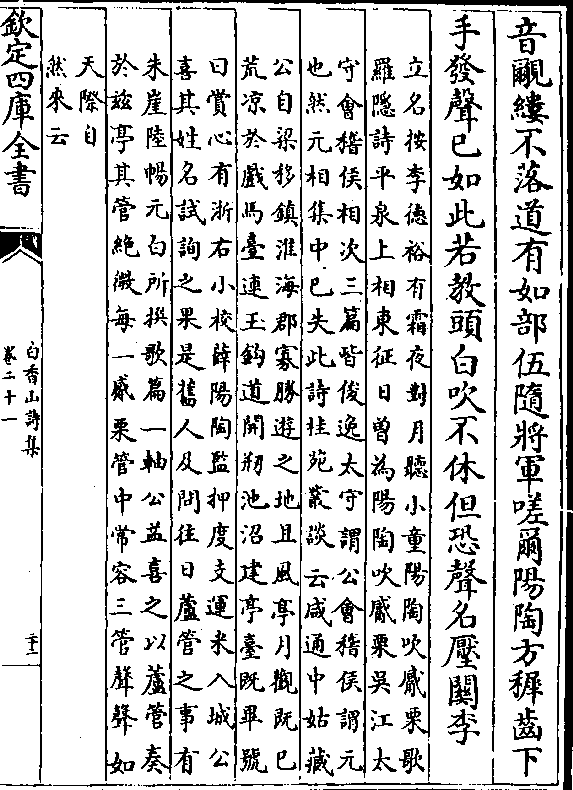 音覼縷不落道有如部伍隨將軍嗟爾陽陶方稺齒下
手發聲已如此若教頭白吹不休但恐聲名壓關李
立名按李德裕有霜夜對月聽小童陽陶吹觱栗歌
羅隱詩平泉上相東征日曾為陽陶吹觱栗吳江太
守會稽侯相次三篇皆俊逸太守謂公會稽侯謂元
也然元相集中已失此詩桂苑叢談云咸通中姑藏
公自梁移鎮淮海郡寡勝遊之地且風亭月觀既已
荒凉於戲馬臺連玉鈎道開剏池沼建亭臺既畢號
曰賞心有浙右小校薛陽陶監押度支運米入城公
喜其姓名試詢之果是舊人及問往日蘆管之事有
朱崖陸暢元白所撰歌篇一軸公益喜之以蘆管奏
於兹亭其管絶微每一觱栗管中常容三管聲聲如
天際自
然來云
欽定四庫全書
白香山詩集
卷二十一